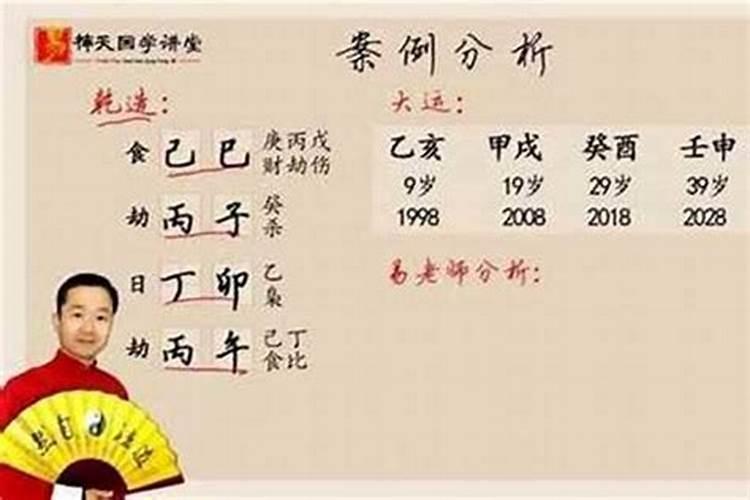 易 搏天国学讲堂
案例分析
乾造:
食 己 巳 庚丙戊
财劫伤
劫 丙 子 癸
杀
日 丁 卯 乙
枭
劫 丙 午 己丁
食比
大运:
乙亥 甲戌 癸酉 壬申
9岁 19岁 29岁 39岁
1998 2008 2018 2028
易老师分析: